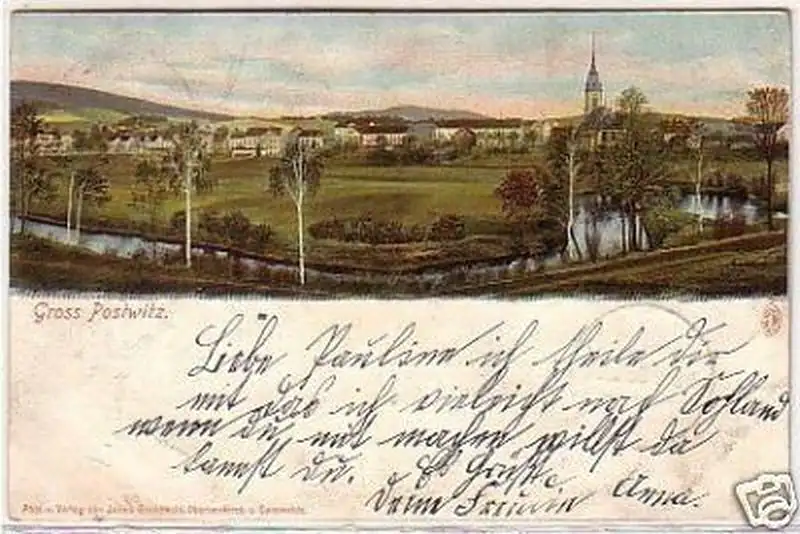 Gross Postwitz.
Liebe Pauline ich theile dir
mit das ich vieleicht nach Sohland
wenn du mit machen willst da
kannst du. Es Grüßt
Deine Freundin Anna.
Phot. u. Verlag von
ebay